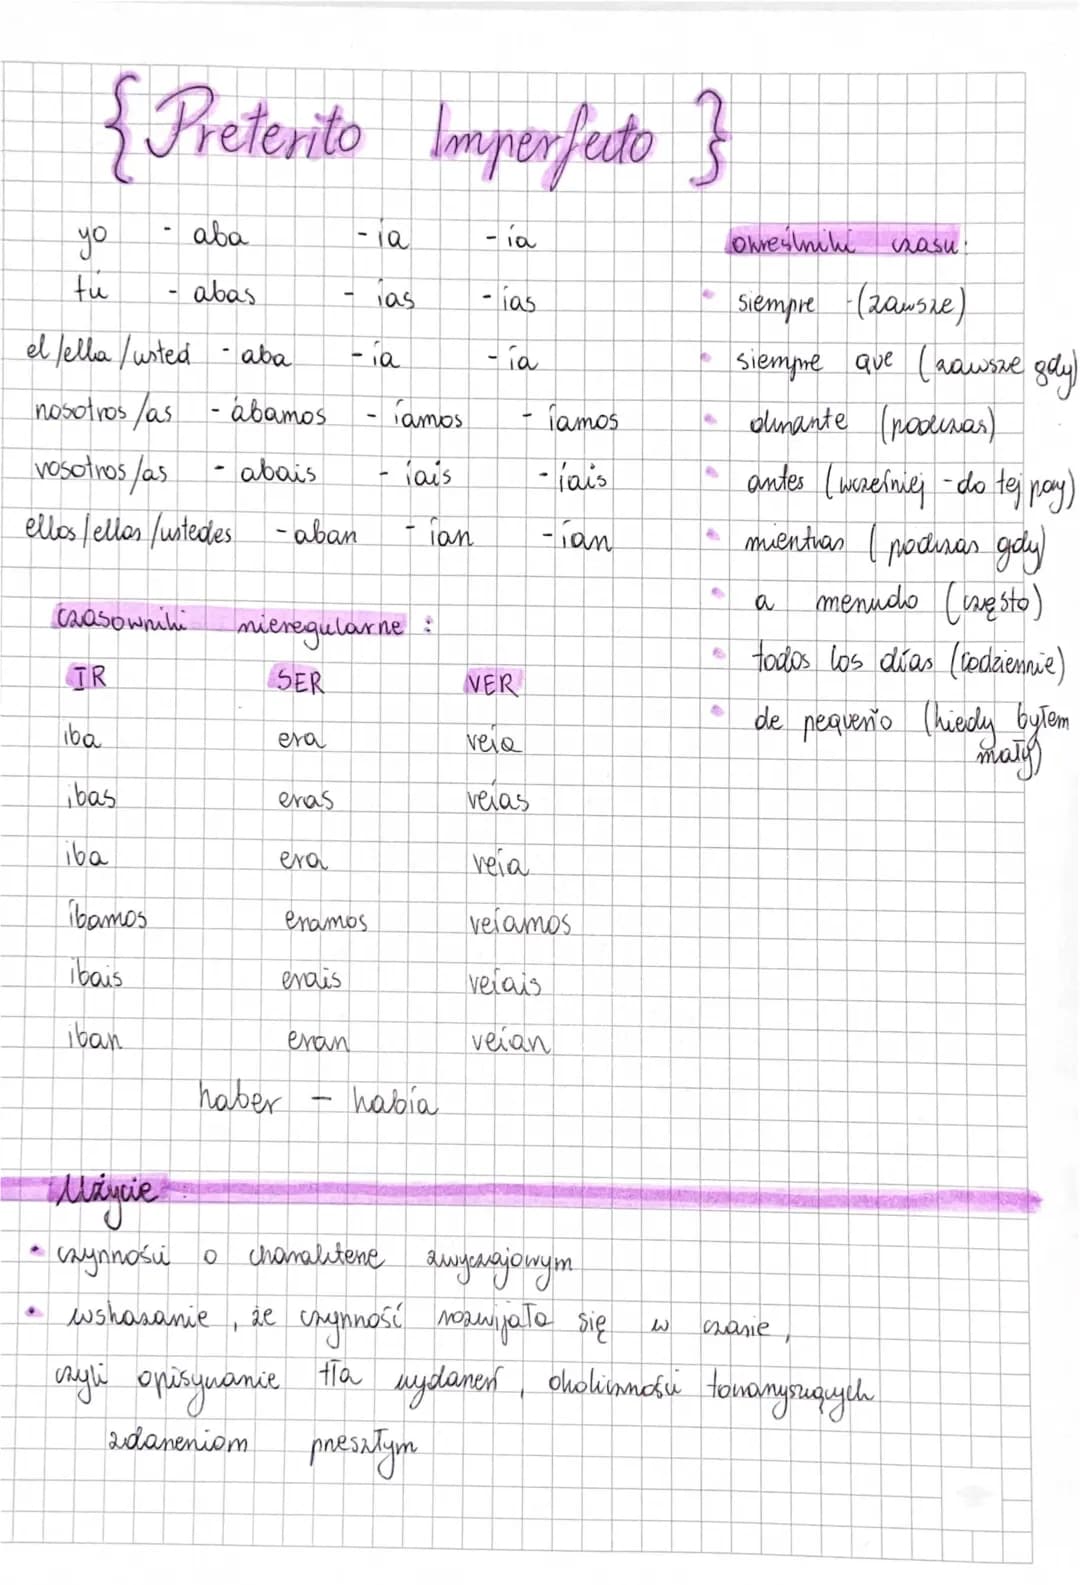 { Preterito Imperfecto }
yo - aba -ia - ía
tú - abas - ías - ías
el/ella/usted - aba - ía - ía
nosotros/as - ábamos - íamos - íamos
vosotros/as - abais - íais - íais
ellos/ellas/ustedes - aban - ían - ían
czasowniki nieregularne :
IR SER VER
iba era veía
ibas eras veías
iba era veía
íbamos eramos veíamos
ibais erais veíais
iban eran veían
haber - había
określniki czasu:
siempre - (zawsze)
siempre que (zawsze gdy)
durante (podczas)
antes (wcześniej - do tej pory)
mientras (podczas gdy)
a menudo (często)
todos los días (codziennie)
de pequeño (kiedy byłem
mały)
Użycie
• czynności o charakterze zwyczajowym
• wskazanie, że czynność rozwijała się w czasie,
czyli opisywanie tła wydarzeń, okoliczności towarzyszących
zdarzeniom przeszłym